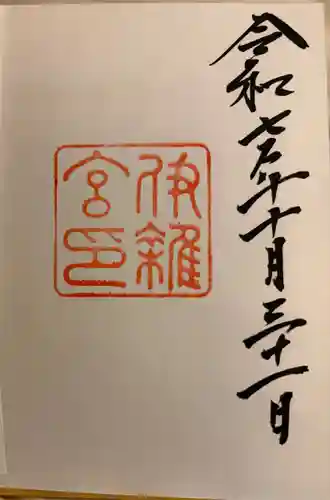 令和七年十月三十一日
伊雜
宮印